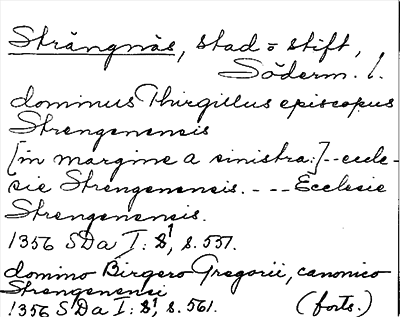 Strängnäs, stad o stift,
Söderm. l.
dominus Thirgillus episcopus
Strengenensis
[in margine a sinistra:]--eccle-
sie Strengenensis. --- Ecclesie
Strengenensis.
1356 SDa I: 8¹, s. 537.
domino Birgero Gregorii, canonico
Strengenensi
1356 SDa I: 8¹, s. 561. (forts.)